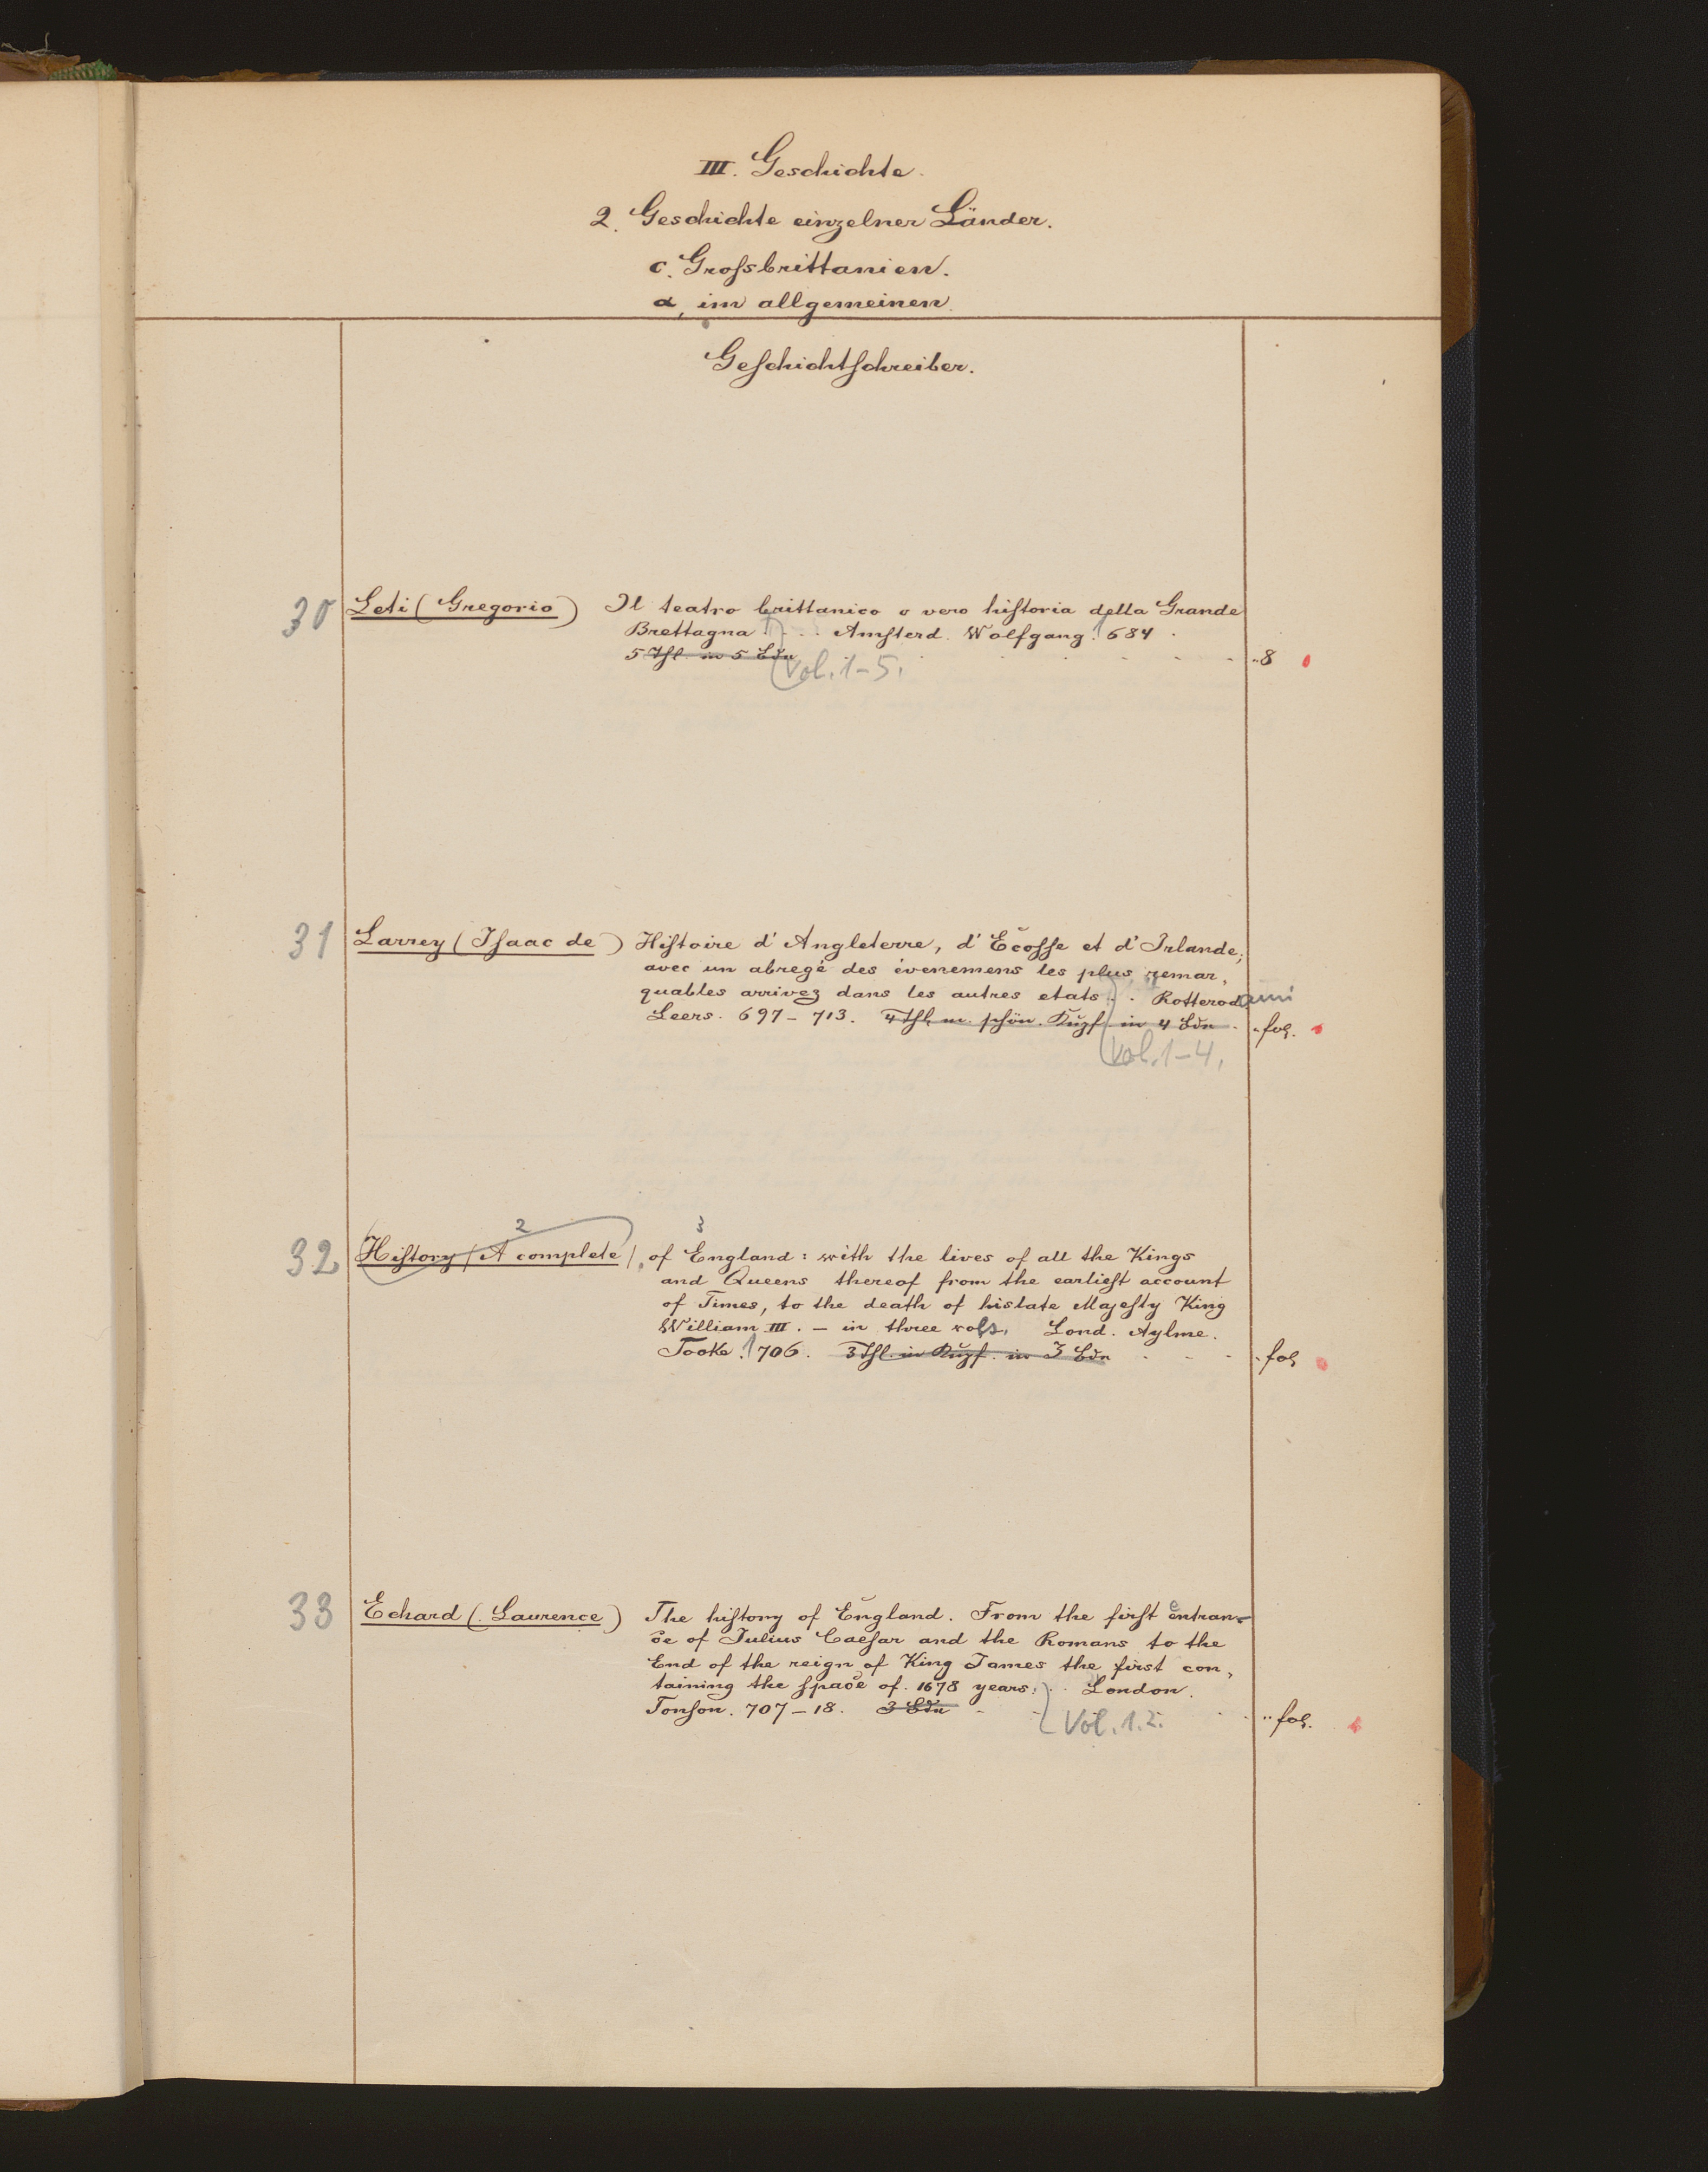 III. Geschichte.
2. Geschichte einzelner Länder.
c. Grossbrittanien.
α, im allgemeinen.
Geschichtschreiber.
30 Leti (Gregorio) Il teatro brittanico o vero historia della Grande
Brettagna . . . Amsterd. Wolfgang. 1684.
5 Thl. in 5 Bdn . . . 8
Vol. 1-5.
31 Larrey (Isaac de) Histoire d'Angleterre, d'Ecosse et d'Irlande,
avec un abregé des évenemens les plus remar,
quables arrivez dans les autres etats . . Rotterodami
Leers. 697-713. 4 Thl. m. schön. Kupf. in 4 Bdn. . fol.
Vol. 1-4.
2 3
32 History (A complete), of England: with the lives of all the Kings
and Queens thereof from the earliest account
of Times, to the death of his late Majesty King
William III. - in three vols. Lond. Aylme.
Tooke. 1706. 3 Thl. in Kupf. in 3 Bdn . . . fol
33 Echard (Laurence) The history of England. From the first entran-
ce of Julius Caesar and the Romans to the
End of the reign of King James the first con,
taining the space of 1678 years: . . London.
Tonson. 707-18. 3 Bdn . . . fol.
Vol. 1.2.